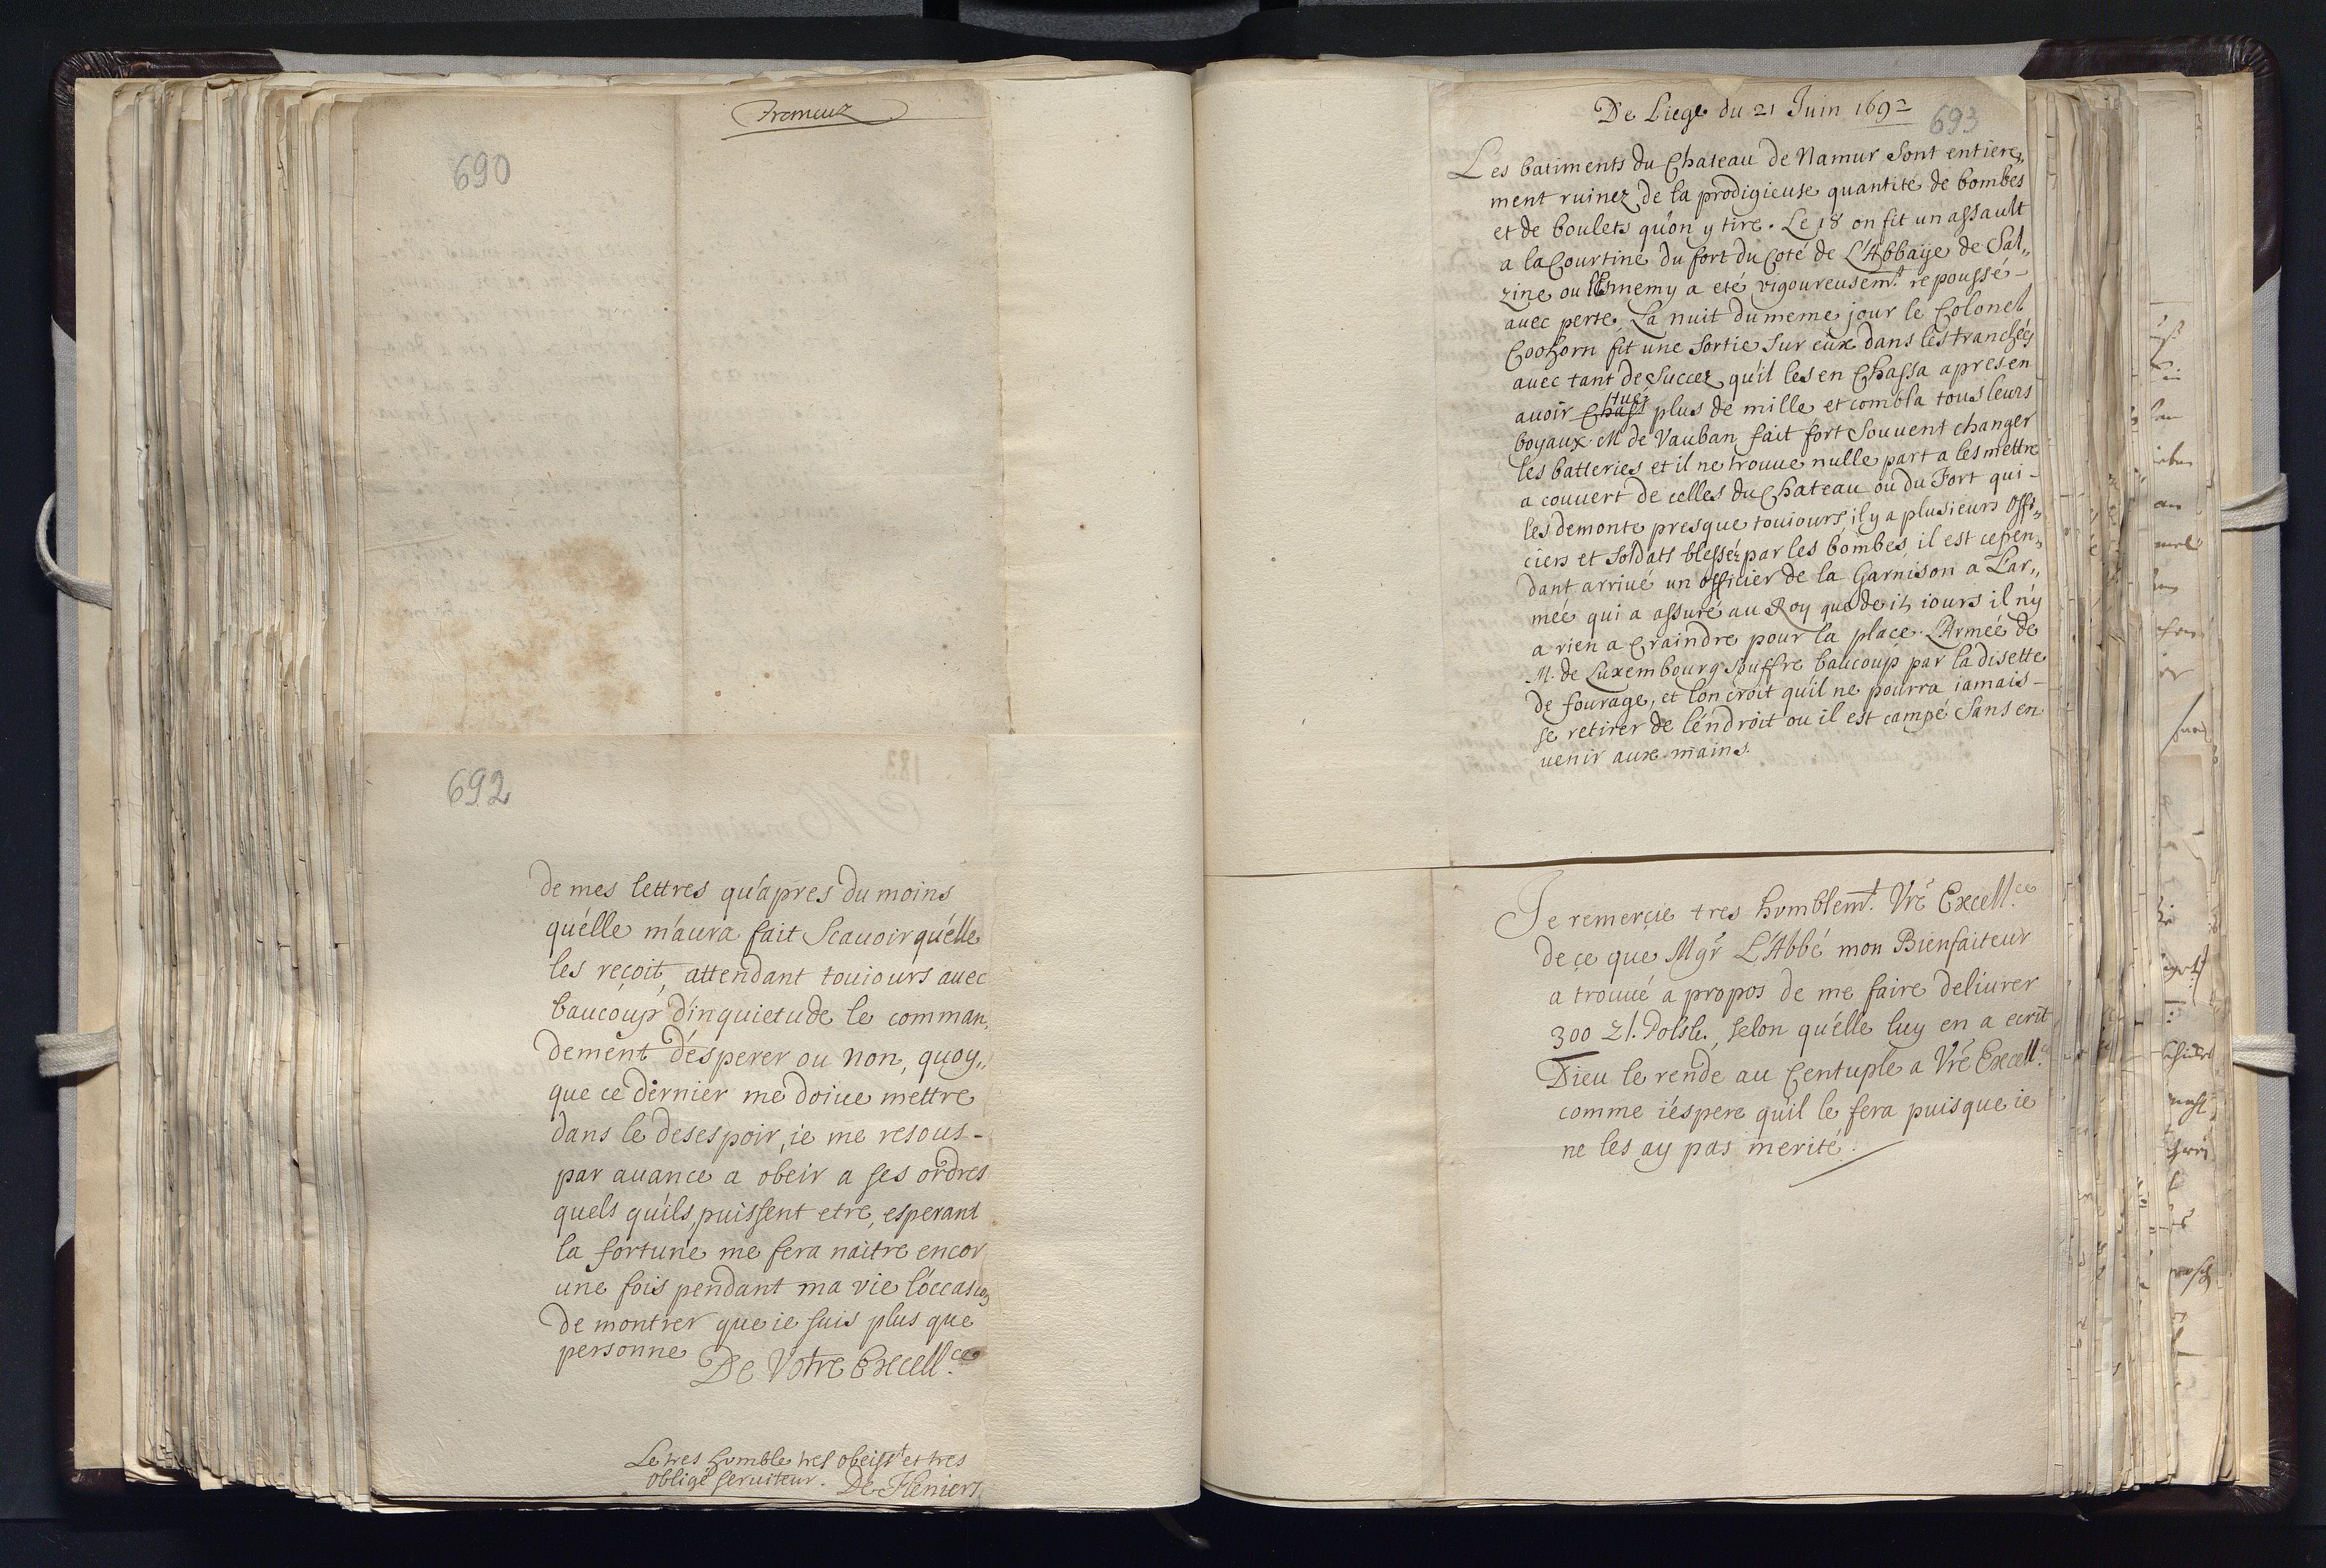 690
692
de mes lettres qu'apres du moins
qu'elle m'aura fait Scauoir qu'elle
les reçoit, attendant touiours auec
baucoup d'inquietude le comman„
dement d'ésperer ou non, quoy„
que ce dernier me doiue mettre
dans le desespoir, ie me resous-
par auance a obeir a ses ordres
quels qu'ils puissent etre, esperant
la fortune me fera naitre encor
une fois pendant ma vie l'occasion
de montrer que ie suis plus que
personne
De Votre Excell.ce
Le tres humble tres obeisst et tres
obligé seruiteur. De Fleniers
De Liege du 21 Juin 1692
693
Les batiments du Chateau de Namur sont entiere„
ment ruinez de la prodigieuse quantité de bombes
et de boulets qu'on y tire. Le 18 on fit un assault
a la Courtine du fort du Coté de L'Abbaije de Sal„
zine ou l'Ennemy a eté vigoureusemt. repoussé-
auec perte, La nuit du meme jour le Colonel
Coohorn fit une Sortie sur eux dans les tranchéés
auec tant de Succez qu'il les en Chassa apres en
auoir Chass tué plus de mille et combla tous leurs
boyaux. M de Vauban fait fort Souuent changer
les batteries et il ne trouue nulle part a les mettre
a couuert de celles du Chateau ou du Fort qui-
les demonte presque touiours, il y a plusieurs Offi„
ciers et Soldats blesséz par les bombes, il est cepen„
dant arriué un officier de la Garnison a L'ar„
méé qui a assuré au Roy que de 15 iours il n'y
a rien a Craindre pour la place. L'Arméé de
M. de Luxembourg souffre baucoup par la disette
de fourage, et l'on croit qu'il ne pourra iamais-
se retirer de l'éndroit ou il est campé Sans en
uenir aux mains.
Je remerçie tres humblemt. Vrē Excell.ce
de çe que Mgr L'Abbé mon Bienfaiteur
a trouué a propos de me faire deliurer
300 Zl. Polsk., selon qu'elle luy en a ecrit
Dieu le rende au Centuple a Vrē Excell.ce
comme i'éspere qu'il le fera puisque ie
ne les ay pas merité.